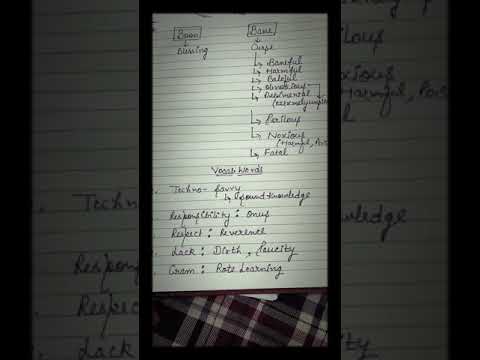 Boon Bane
Blessing Curse
Baneful
Harmful
Baleful
Obnoxious
Detrimental
(extremely
Perilous
Noxious
(Harmful,
Fatal
Vocab Words
Techno- savvy
sound knowledge
Responsibility : Onus
Respect : Reverence
Lack : Dirth, Paucity
Cram : Rote Learning